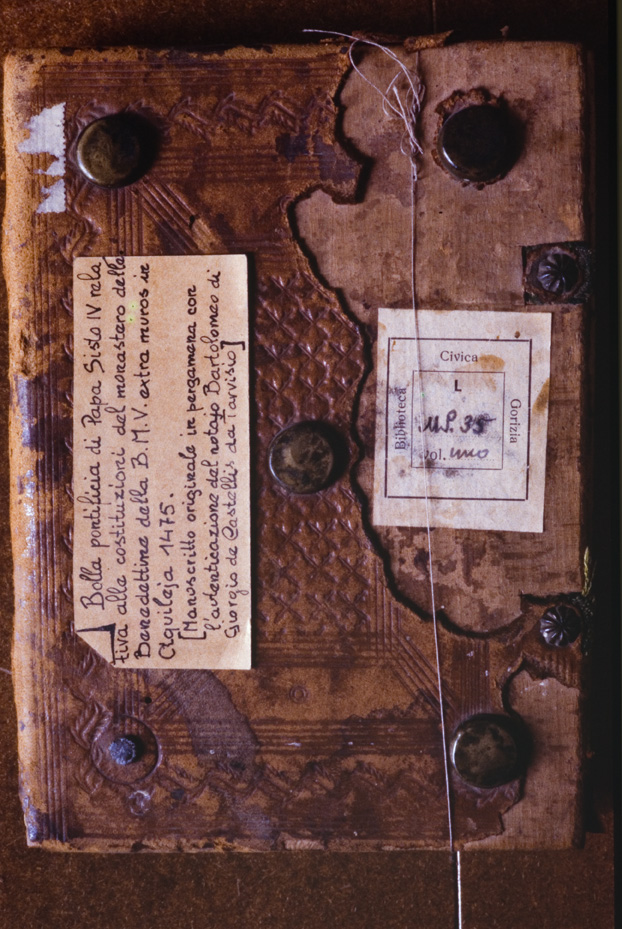 Bolla pontificia di Papa Sisto IV rela
tiva alle costituzioni del monastero delle
Benedettine della B. M. V. extra muros in
Aquileja 1475.
[Manoscritto originale in pergamena con
l'autenticazione del notajo Bartolomeo di
Giorgio de Castellis da Tarvisio]
Civica
Biblioteca
Gorizia
L
MP. 35
vol. uno